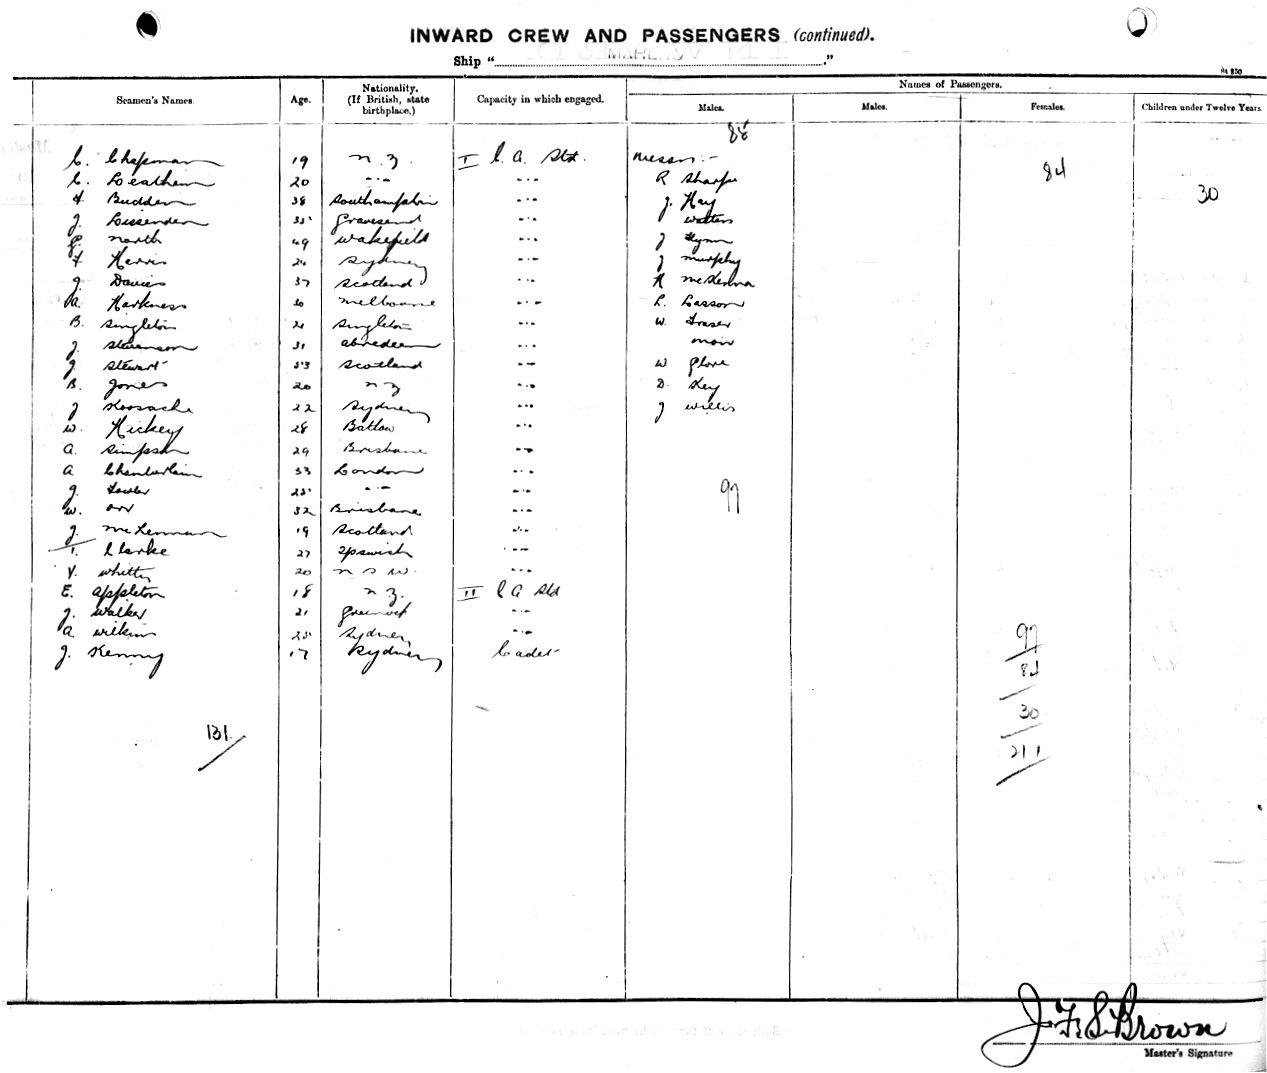 INWARD CREW AND PASSENGERS (continued).
Ship " ."
Seamen's Names. Age. Nationality. (If British, state birthplace.) Capacity in which engaged. Names of Passengers.
Males. Males. Females. Children under Twelve Years.
88
C. Chapman 19 N.Z. I C.A. Std. Messrs:-
C. Leathem 20 -"- -"- R Sharpe 84
Budden 38 Southampton -"- J. Hay 30
J. Lissenden 35 Gravesend -"- Watters
North 49 Wakefield -"- J Flynn
F Kerris 24 Sydney -"- J Murphy
J. Davies 37 Scotland -"- H McKenna
A. Harkness 30 Melbourne -"- L. Lasson
B. Singleton 21 Singleton -"- W. Fraser
J. Stevenson 31 Abredeen -"- Moir
J. Stewart 33 Scotland -"- W Glove
B. Jones 20 N Z -"- D. Key
J 22 Sydney -"- J Willis
W. Hickey 28 Batlow -"-
A. Simpson 29 Brisbane -"-
A Chamberlain 33 London -"-
J. Fowler 25 -"- -"- 97
W. Orr 32 Brisbane -"-
J. McLennan 19 Scotland -"-
Clarke 27 Ipswich -"-
V. Whitty 20 N S W. -"-
E. Appleton 18 N Z. II C A Std
J. Walker 21 Greenock -"-
A Wilkins 25 Sydney -"-
J. Kenny 17 Sydney Cadet
97
84
30
211
131
J. F. S. Brown
Master's Signature